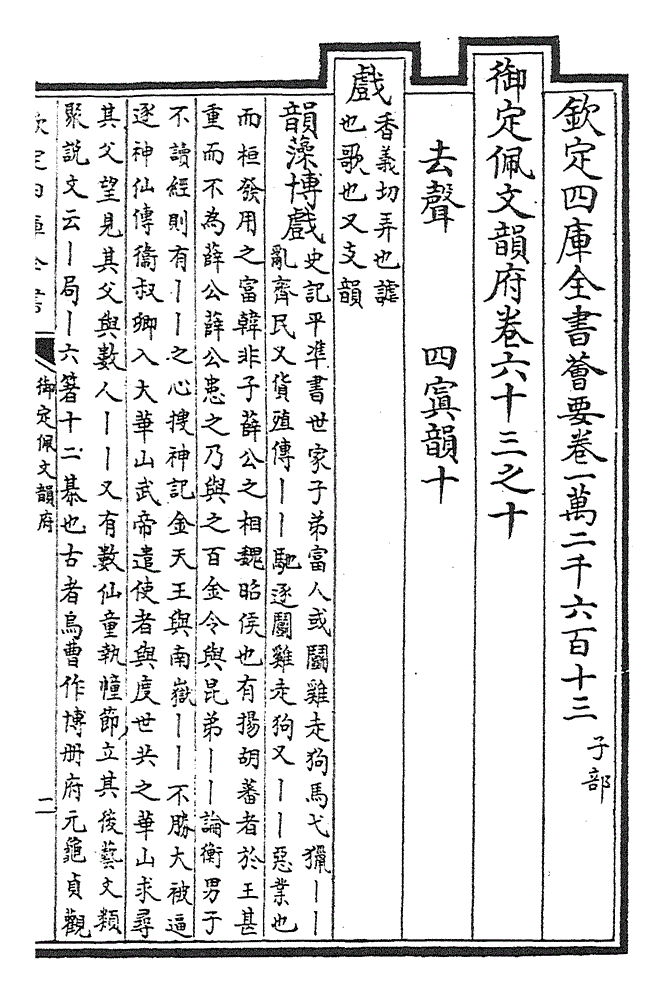 欽定四庫全書薈要卷一萬二千六百十三 子部
御定佩文韻府卷六十三之十
去聲 四寘韻十
戲 香義切弄也謔
也歌也又支韻
韻藻博戲 史記平準書世家子弟富人或鬬雞走狗馬弋獵丨丨
亂齊民又貨殖傳丨丨馳逐鬬雞走狗又丨丨惡業也
而桓發用之富韓非子薛公之相魏昭侯也有揚胡蕃者於王甚
重而不為薛公薛公患之乃與之百金令與昆弟丨丨論衡男子
不讀經則有丨丨之心搜神記金天王與南嶽丨丨不勝大被逼
逐神仙傳衞叔卿入大華山武帝遣使者與度世共之華山求尋
其父望見其父與數人丨丨又有數仙童執幢節立其後藝文類
聚説文云丨局丨六箸十二棊也古者烏曹作博册府元龜貞觀
欽定四庫全書
御定佩文韻府